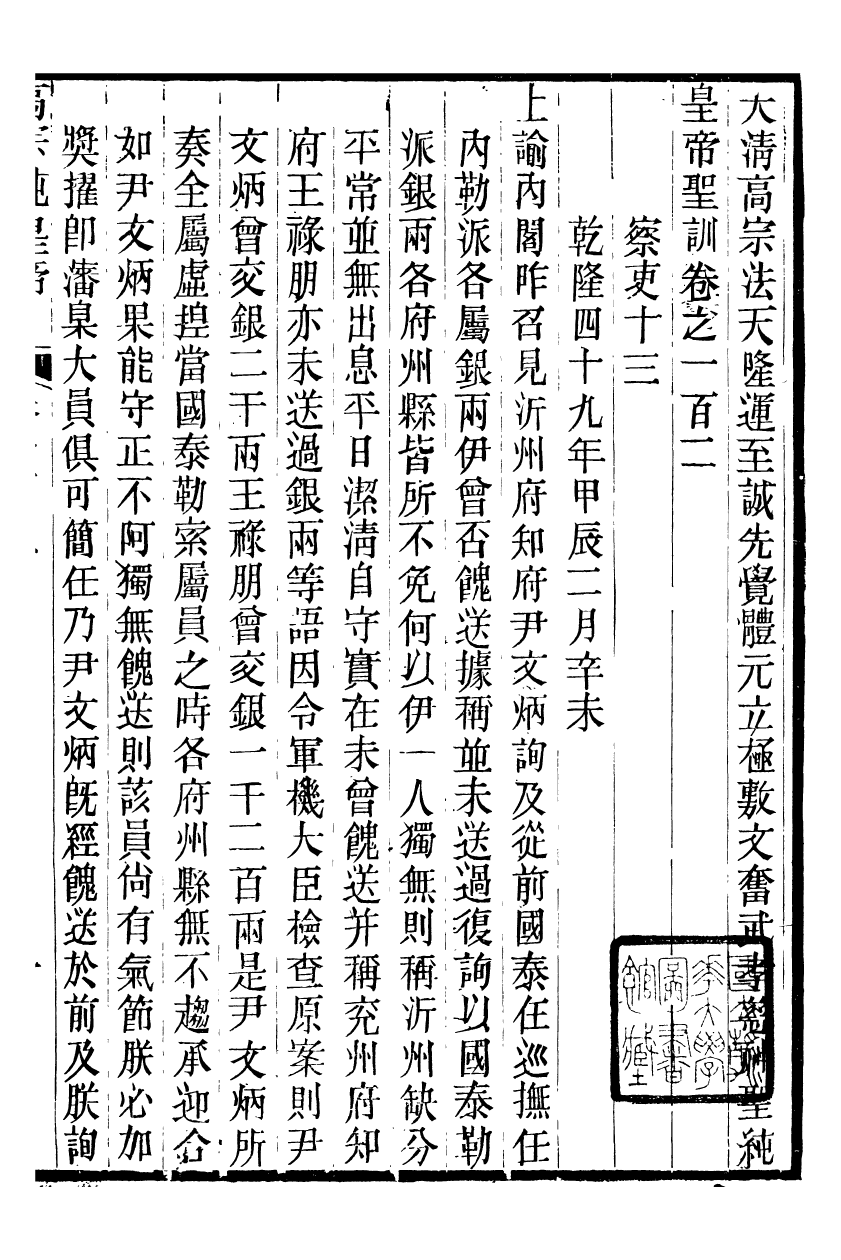 大清高宗法天隆運至誠先覺體元立極敷文奮武孝慈神聖純
皇帝聖訓卷之一百二
察吏十三
乾隆四十九年甲辰二月辛未
上諭內閣昨召見沂州府知府尹文炳詢及從前國泰任巡撫任
內勒派各屬銀兩伊曾否餽送據稱並未送過復詢以國泰勒
派銀兩各府州縣皆所不免何以伊一人獨無則稱沂州缺分
平常並無出息平日潔清自守實在未曾餽送并稱兖州府知
府王祿朋亦未送過銀兩等語因令軍機大臣檢查原案則尹
文炳曾交銀二千兩王祿朋曾交銀一千二百兩是尹文炳所
奏全屬虛揑當國泰勒索屬員之時各府州縣無不趨承迎合
如尹文炳果能守正不阿獨無餽送則該員尙有氣節朕必加
獎擢卽藩臬大員俱可簡任乃尹文炳旣經餽送於前及朕詢
高宗純皇帝
國立
華大學
圖書
館藏